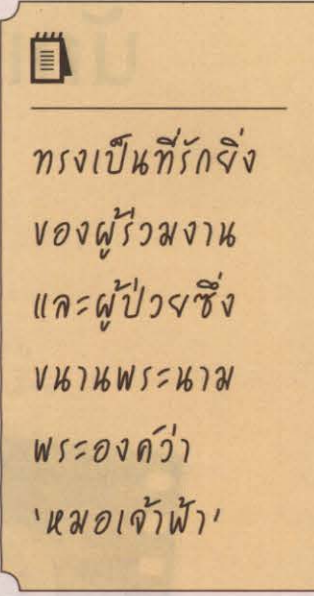 ทรงเป็นที่รักยิ่ง
ของผู้ร่วมงาน
และผู้ป่วยซึ่ง
ขนานพระนาม
พระองค์ว่า
'หมอเจ้าฟ้า'